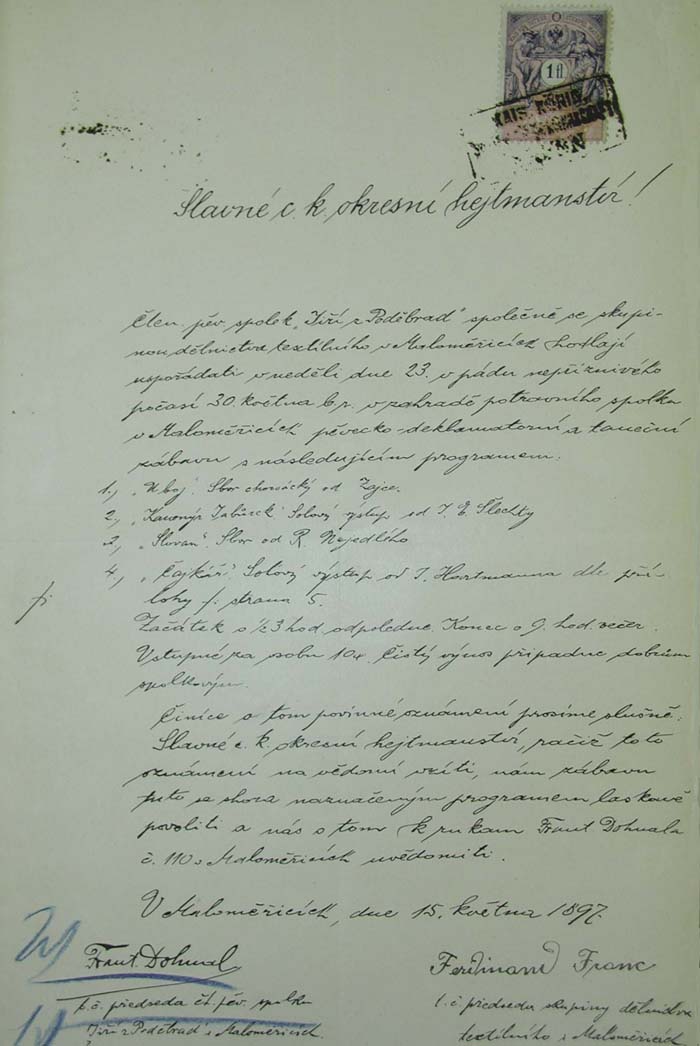 1 fl
KAIS. KÖNIGL.
Slavné c. k. okresní hejtmanství!
Čten. pěv. spolek „Jiří z Poděbrad" společně se skupi-
nou dělnictva textilního v Maloměřicích hodlají
uspořádati v neděli dne 23. v pádu nepříznivého
počasí 30. května t. r. v zahradě potravního spolku
v Maloměřicích pěvecko-deklamatorní a taneční
zábavu s následujícím programem:
1., „U boj". Sbor chorvácký od Zajce.
2., „Kanonýr Jabůrek" Solový výstup od J. E. Šlechty
3., „Slovan". Sbor od R. Nejedlého
4., „Čajkář". Solový výstup od J. Hartmanna dle pří-
lohy ƒ. strana 5.
Začátek o ½3 hod. odpoledne. Konec o 9. hod. večer.
Vstupné za osobu 10 x. Čistý výnos připadne dobrým
spolkovým.
Činíce o tom povinné oznámení prosíme slušně:
Slavné c. k. okresní hejtmanství, račiž toto
oznámení na vědomí vzíti, nám zábavu
tuto se shora naznačeným programem laskavě
povoliti a nás o tom k rukám Frant. Dohnala
č. 110 v Maloměřicích uvědomiti.
V Maloměřicích, dne 15. května 1897.
Frant. Dohnal
t. č. předseda čt. pěv. spolku
Jiří z Poděbrad v Maloměřicích
Ferdinand Franc
t. č. předseda skupiny dělnictva
textilního v Maloměřicích